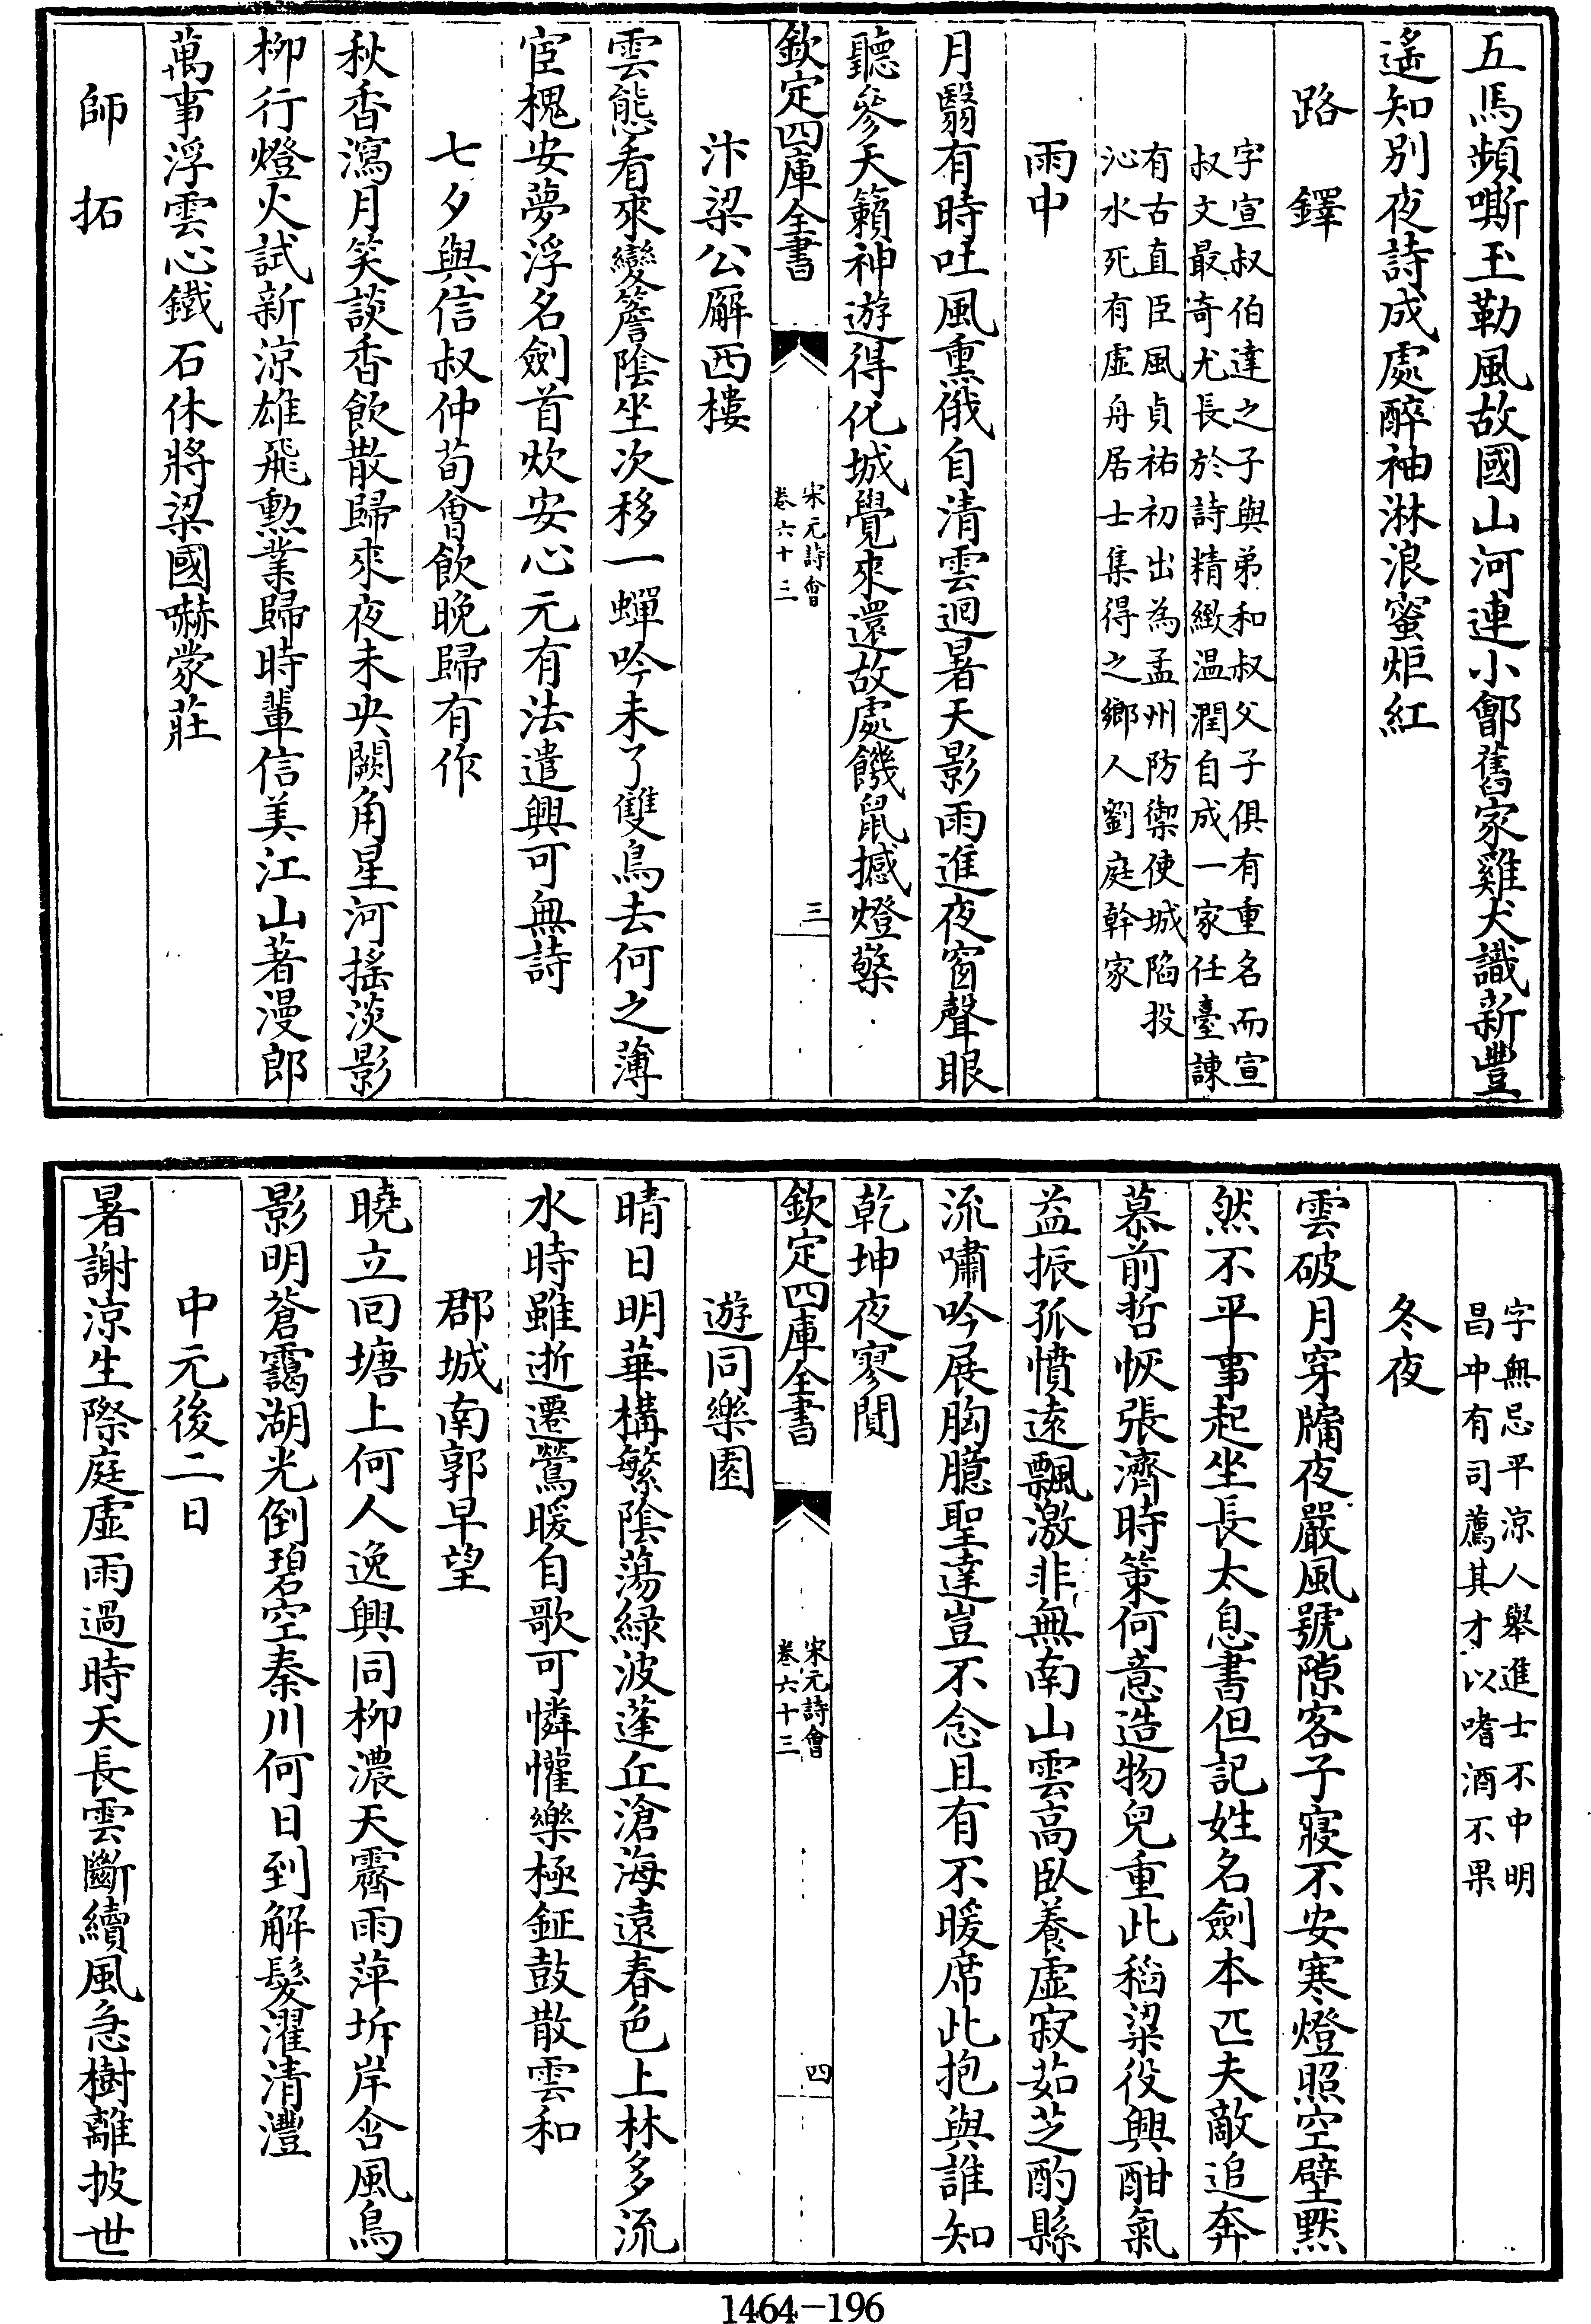 五馬頻嘶玉勒風故國山河連小鄮舊家雞犬識新豐
遙知別夜詩成處醉袖淋浪蜜炬紅
路鐸
字宣叔伯達之子與弟和叔父子俱有重名而宣
叔文最奇尤長於詩精緻温潤自成一家任臺諫
有古直臣風貞祐初出為孟州防禦使城陷投
沁水死有虛舟居士集得之鄉人劉庭幹家
雨中
月翳有時吐風熏俄自清雲迴暑天影雨進夜窗聲眼
聽參天籟神遊得化城覺來還故處饑鼠撼燈檠
欽定四庫全書
宋元詩會
卷六十三
三
汴梁公廨西樓
雲態看來變簷陰坐次移一蟬吟未了雙鳥去何之薄
宦槐安夢浮名劍首炊安心元有法遣興可無詩
七夕與信叔仲荀會飲晚歸有作
秋香瀉月笑談香飲散歸來夜未央闕角星河搖淡影
柳行燈火試新涼雄飛勲業歸時輩信美江山著漫郎
萬事浮雲心鐵石休將梁國嚇蒙莊
師拓
字無忌平涼人舉進士不中明
昌中有司薦其才以嗜酒不果
冬夜
雲破月穿牖夜嚴風號隙客子寢不安寒燈照空壁黙
然不平事起坐長太息書但記姓名劍本匹夫敵追奔
慕前哲恢張濟時策何意造物兒重此稻粱役興酣氣
益振孤憤遠飄激非無南山雲高臥養虛寂茹芝酌縣
流嘯吟展胸臆聖達豈不念且有不暖席此抱與誰知
乾坤夜寥閴
欽定四庫全書
宋元詩會
卷六十三
四
遊同樂園
晴日明華構繁陰蕩緑波蓬丘滄海遠春色上林多流
水時雖逝遷鶯暖自歌可憐懽樂極鉦鼓散雲和
郡城南郭早望
曉立回塘上何人逸興同柳濃天霽雨萍坼岸含風鳥
影明蒼靄湖光倒碧空秦川何日到解髮濯清灃
中元後二日
暑謝涼生際庭虛雨過時天長雲斷續風急樹離披世
1464-196